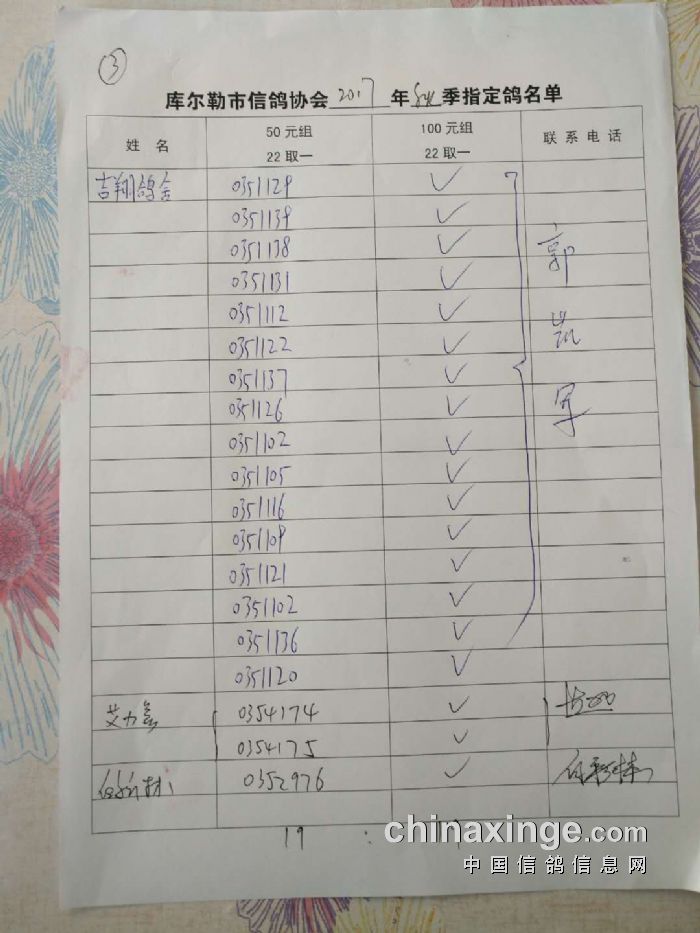 ③
库尔勒市信鸽协会 2017 年 季指定鸽名单
姓 名 50元组 22取一 100元组 22取一 联系电话
吉翔鸽舍 0351129 ✓
0351139 ✓
0351138 ✓ 郭
0351131 ✓
0351112 ✓ 凯
0351122 ✓
0351137 ✓
0351126 ✓ 军
0351102 ✓
0351105 ✓
0351116 ✓
0351109 ✓
0351121 ✓
0351102 ✓
0351136 ✓
0351120 ✓
艾力 0354174 ✓
0354175 ✓
0352976 ✓
19 :
chinaxinge.com
中国信鸽信息网